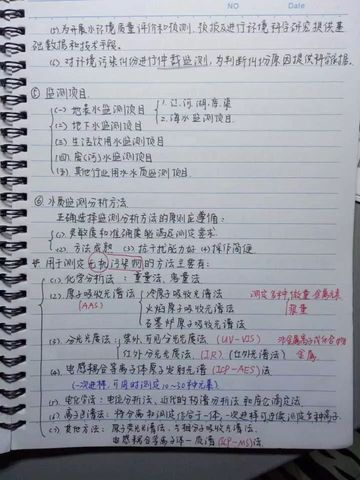 NO
Date
(5).为开展水环境质量评价和预测、预报及进行环境科学研究提供基
础数据和技术手段。
(6). 对环境污染纠纷进行仲裁监测,为判断纠纷原因提供科学依据.
⑤ 监测项目
(一) 地表水监测项目
1. 江、河、湖、库、渠
2. 海水监测项目.
(二) 地下水监测项目
(三) 生活饮用水监测项目
(四) 废(污)水监测项目
(五) 其他行业用水水质监测项目.
⑥ 水质监测分析方法
正确选择监测分析方法的原则应遵循:
(1). 灵敏度和准确度能满足测定要求
(2). 方法成熟 (3) 抗干扰能力好 (4) 操作简便
* 用于测定无机污染物的方法主要有:
(1). 化学分析法:重量法、容量法
(2). 原子吸收光谱法
(AAS)
冷原子吸收光谱法
火焰原子吸收光谱法
石墨炉原子吸收光谱法
测定多种微量金属元素
(3). 分光光度法:
紫外、可见分光光度法 (UV-VIS)
红外分光光度法. (IR) (红外光谱法)
金属.
(4). 电感耦合等离子体原子发射光谱 (ICP-AES)法
(一次进样,可同时测定10~30种元素)
(5). 电化学法:电位分析法、近代的极谱分析法和库仑滴定法.
(6). 离子色谱法:将分离和测定结合于一体,一次进样可连续测定多种离子.
(7). 其他方法:原子荧光光谱法、气相分子吸收光谱法.
电感耦合等离子体—质谱 (ICP-MS)法.